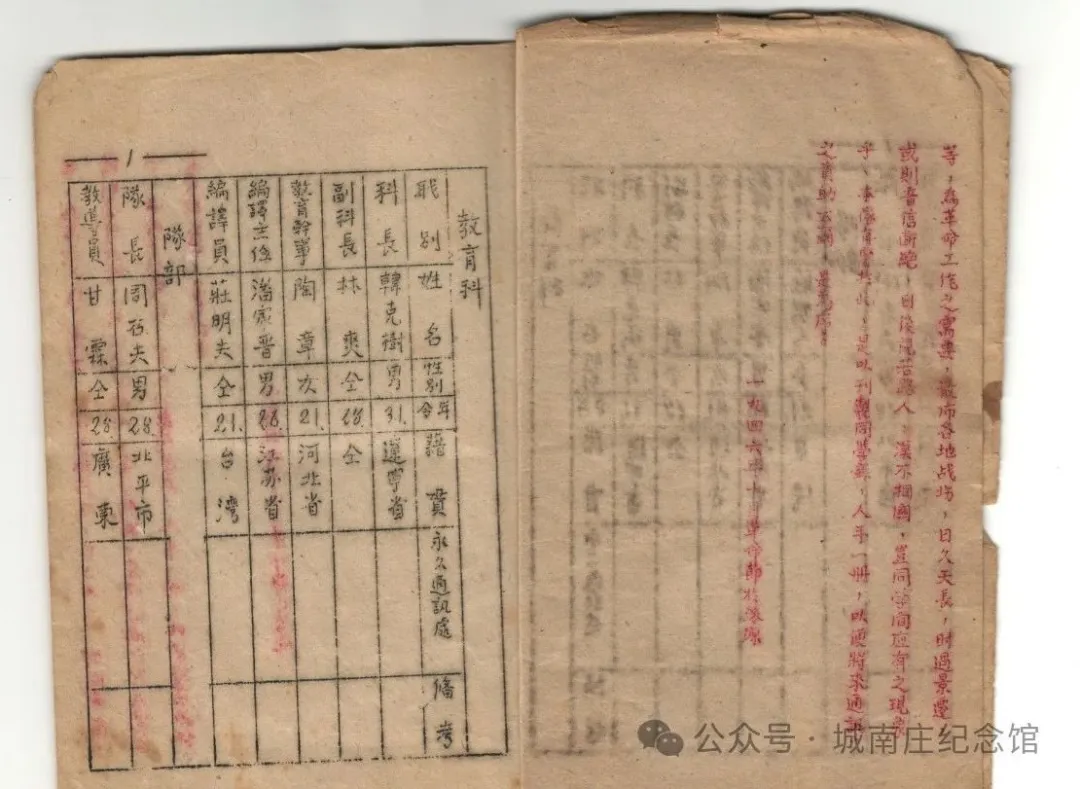 等，為革命工作之需要，散佈各地战場，日久天長，時過景遷
或則書信断絶，日後見若路人，漠不相關，豈同学间應有之現象
乎、本隊有於此，是以刊同學錄，人手一冊，以便將來通訊
之資助，是為序
一九四六年十月革命節於張垣
教育科
职别 姓名 性别 年令 藉貫 永久通訊處 備考
科長 韓克樹 男 31. 遼寧省
副科長 林爽 仝 28. 仝
教育幹事 陶章 女 21. 河北省
編譯主任 潘家晋 男 26. 江苏省
編譯員 莊明夫 仝 21. 台灣
隊部
隊長 周夫 男 28. 北平市
教導員 甘霖 仝 28. 廣東
1
公众号 · 城南庄纪念馆